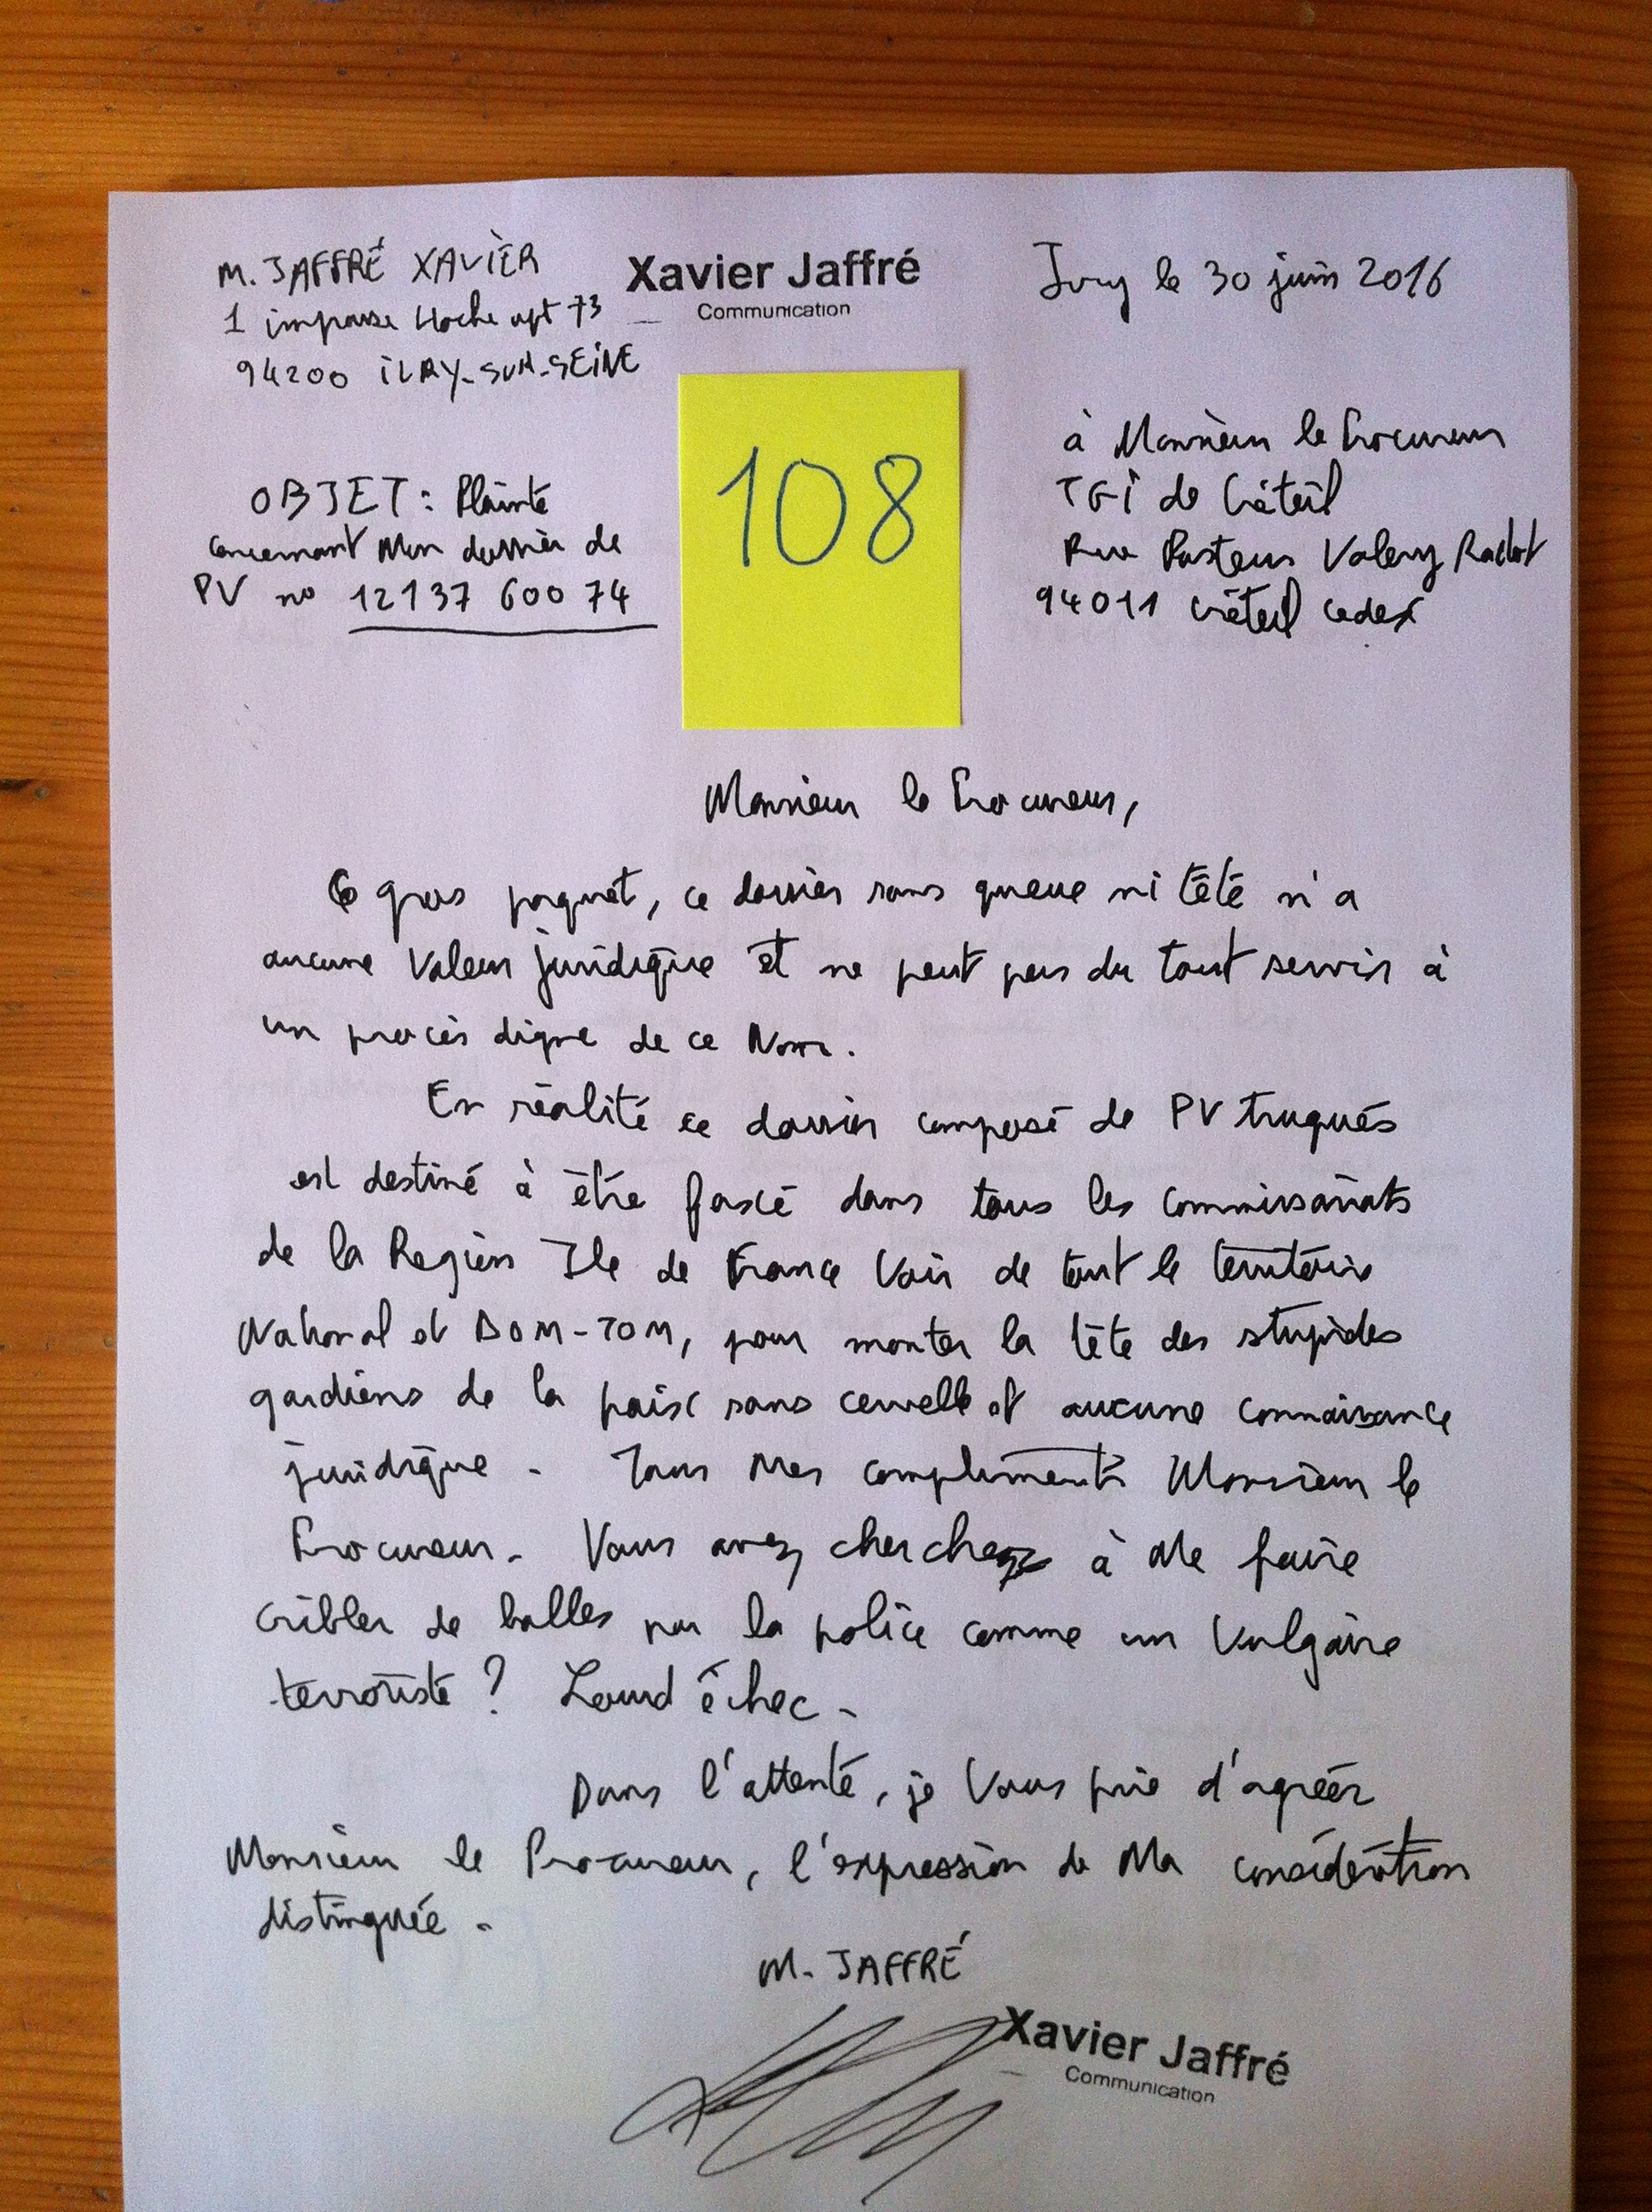 M. JAFFRÉ XAVIER
1 impasse Hoche apt 73
94200 IVRY-SUR-SEINE
Xavier Jaffré
Communication
Ivry le 30 juin 2016
108
à Monsieur le Procureur
TGI de Créteil
Rue Pasteur Valery Radot
94011 Créteil cedex
OBJET : Plainte
concernant Mon dossier de
PV no 12137 600 74
Monsieur le Procureur,
Ce gros paquet, ce dossier sans queue ni tête n'a
aucune Valeur juridique et ne peut pas du tout servir à
un procès digne de ce Nom.
En réalité ce dossier composé de PV truqués
est destiné à être faxcé dans tous les commissariats
de la Region Ile de France Voir de tout le territoire
National et DOM-TOM, pour monter la tête des stupides
gardiens de la paix sans cervelle et aucune connaissance
juridique. Tous Mes compliments Monsieur le
Procureur. Vous avez cherchez à Me faire
cribler de balles par la police comme un Vulgaire
terroriste ? Lourd échec.
Dans l'attente, je Vous prie d'agréer
Monsieur le Procureur, l'expression de Ma considération
distinguée.
M. JAFFRÉ
Xavier Jaffré
Communication